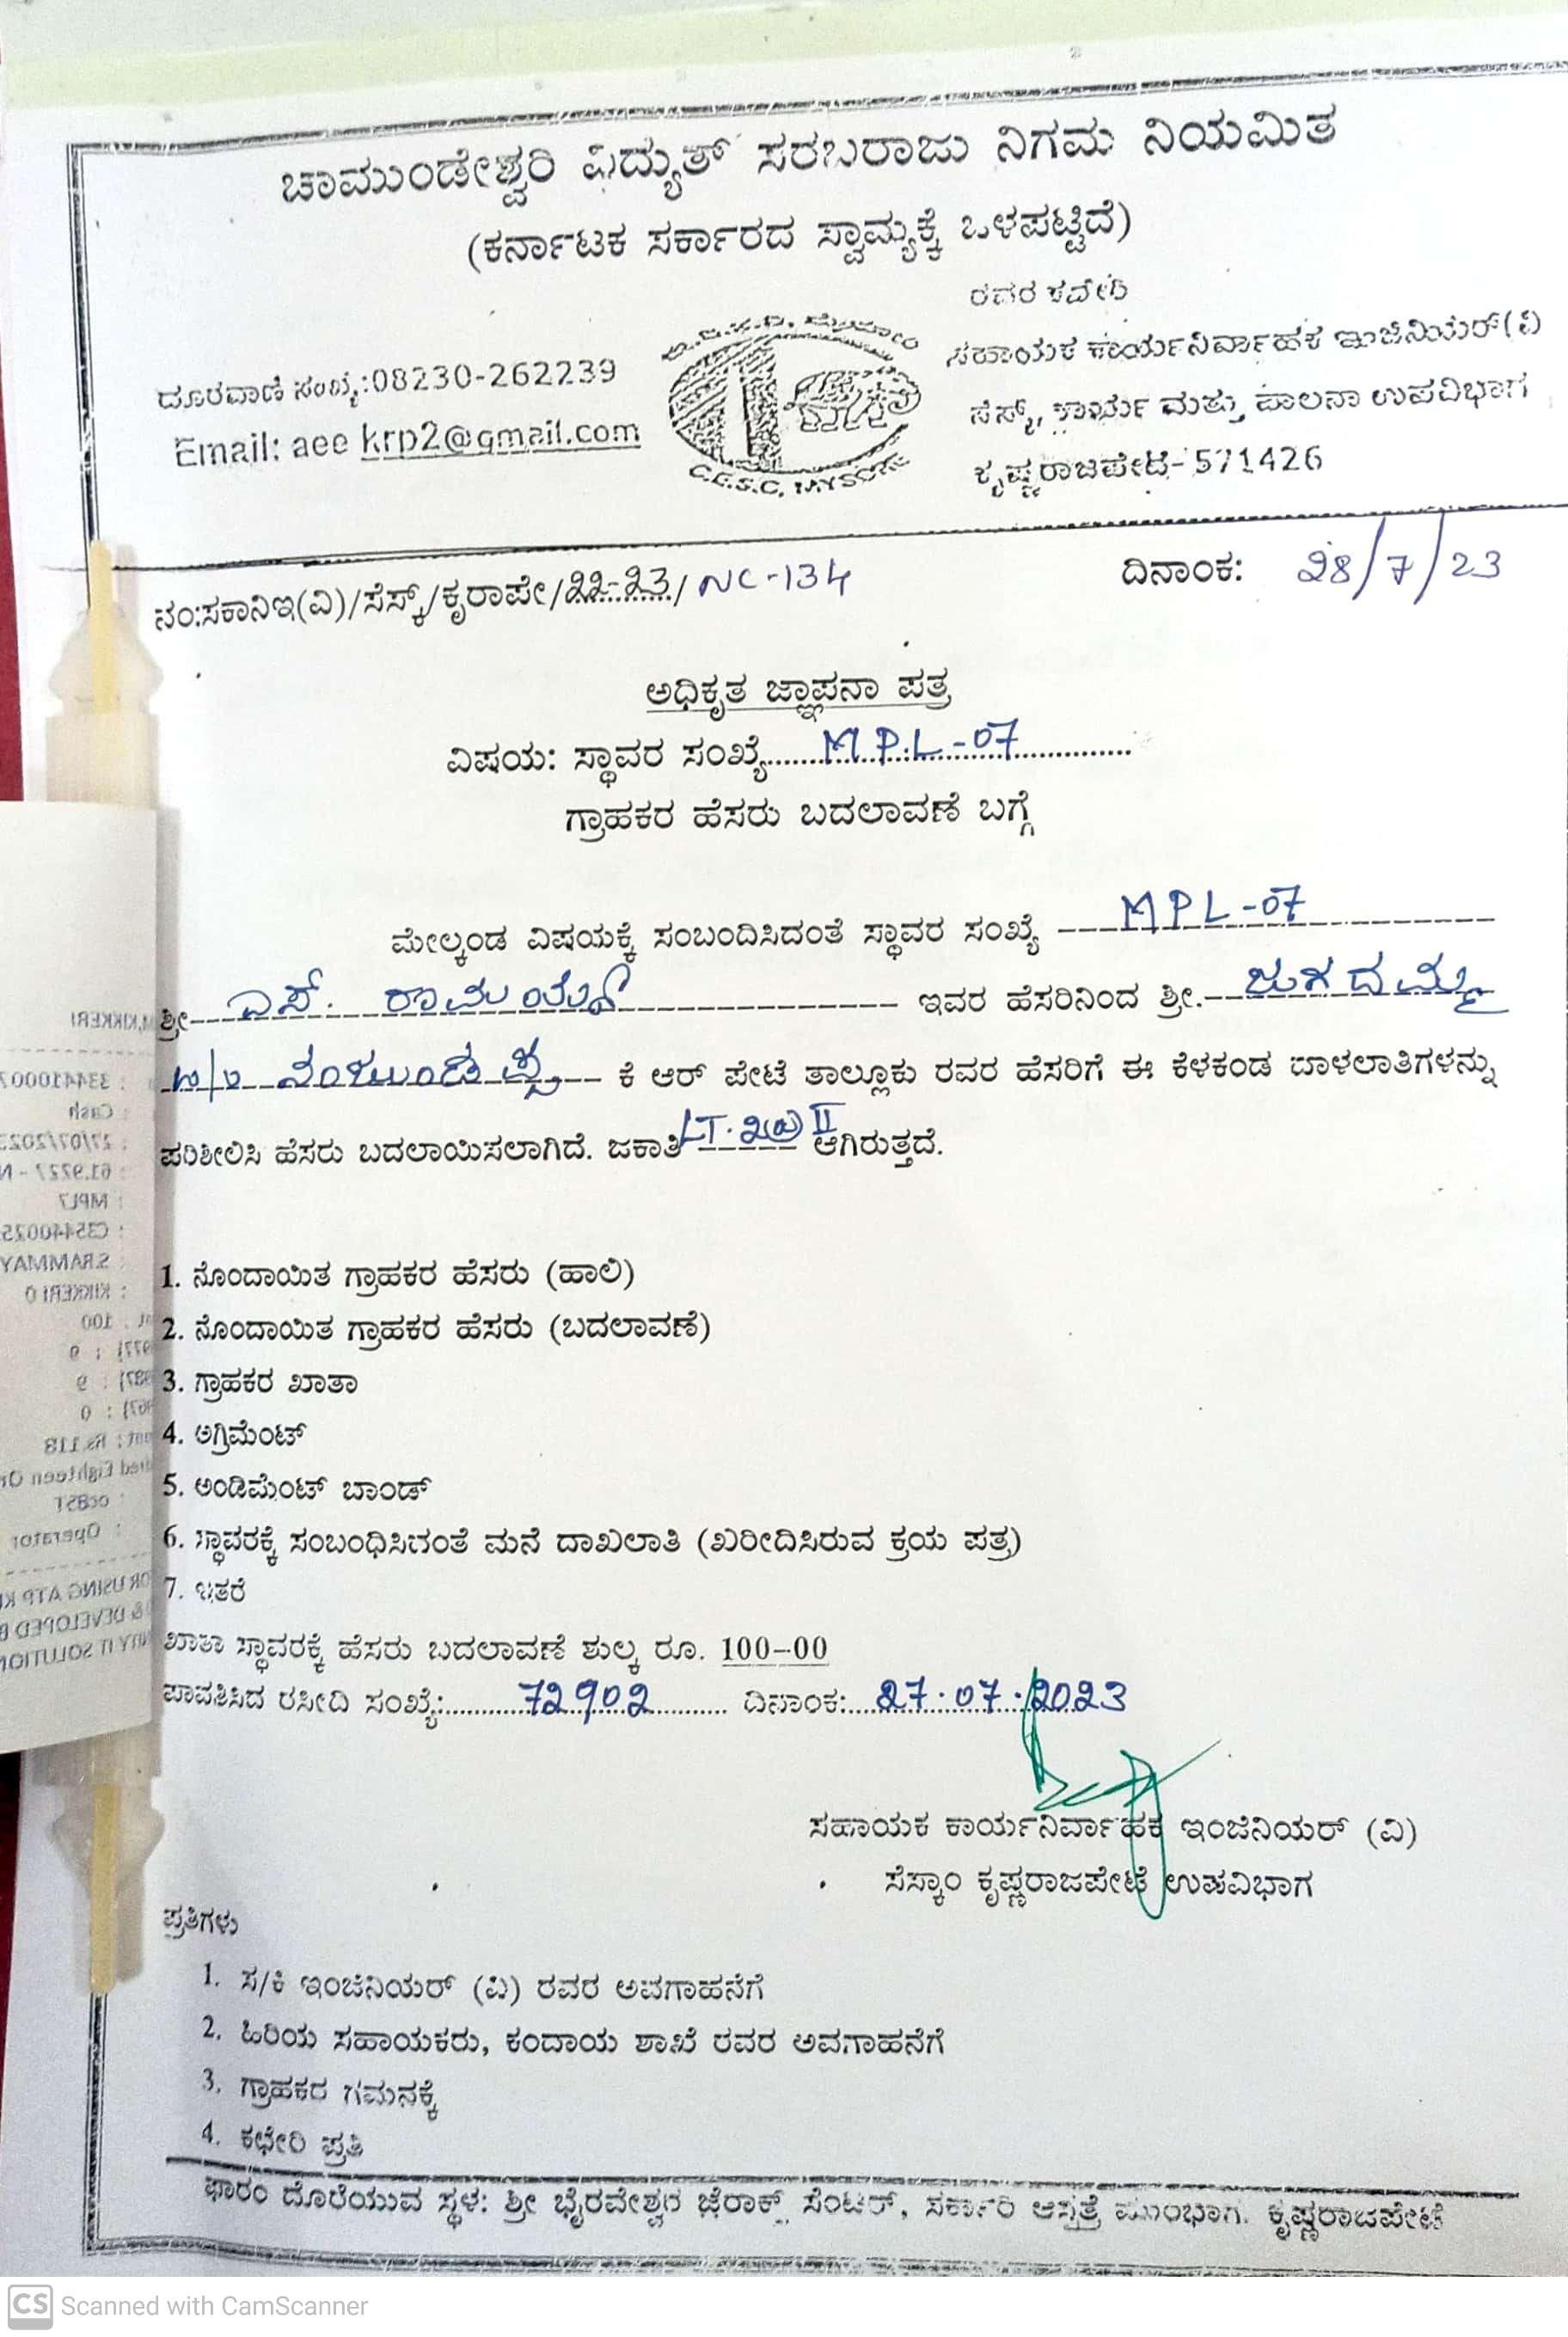 ಚಾಮುಂಡೇಶ್ವರಿ ವಿದ್ಯುತ್ ಸರಬರಾಜು ನಿಗಮ ನಿಯಮಿತ
(ಕರ್ನಾಟಕ ಸರ್ಕಾರದ ಸ್ವಾಮ್ಯಕ್ಕೆ ಒಳಪಟ್ಟಿದೆ)
ರವರ ಕಛೇರಿ
ಸಹಾಯಕ ಕಾರ್ಯನಿರ್ವಾಹಕ ಇಂಜಿನಿಯರ್(ವಿ
ದೂರವಾಣಿ ಸಂಖ್ಯೆ:08230-262239
ಸೆಸ್ಕ್, ಕಾರ್ಯ ಮತ್ತು ಪಾಲನಾ ಉಪವಿಭಾಗ
Email: aee krp2@gmail.com
ಕೃಷ್ಣರಾಜಪೇಟೆ-571426
C.E.S.C, MYSORE
ನಂ:ಸಕಾನಿಇ(ವಿ)/ಸೆಸ್ಕ್/ಕೃರಾಪೇ/22-23/ NC-134
ದಿನಾಂಕ: 28/7/23
ಅಧಿಕೃತ ಜ್ಞಾಪನಾ ಪತ್ರ
ವಿಷಯ: ಸ್ಥಾವರ ಸಂಖ್ಯೆ......M.P.L-07..........
ಗ್ರಾಹಕರ ಹೆಸರು ಬದಲಾವಣೆ ಬಗ್ಗೆ
ಮೇಲ್ಕಂಡ ವಿಷಯಕ್ಕೆ ಸಂಬಂದಿಸಿದಂತೆ ಸ್ಥಾವರ ಸಂಖ್ಯೆ ----MPL-07----------
ಶ್ರೀ---ಎಸ್. ರಾಮಯ್ಯ-------------- ಇವರ ಹೆಸರಿನಿಂದ ಶ್ರೀ.--ಜಗದಮ್ಮ
ನಂಜುಂಡಪ್ಪ--- ಕೆ ಆರ್ ಪೇಟೆ ತಾಲ್ಲೂಕು ರವರ ಹೆಸರಿಗೆ ಈ ಕೆಳಕಂಡ ದಾಖಲಾತಿಗಳನ್ನು
ಪರಿಶೀಲಿಸಿ ಹೆಸರು ಬದಲಾಯಿಸಲಾಗಿದೆ. ಜಕಾತಿ LT-2(a) II ಆಗಿರುತ್ತದೆ.
1. ನೊಂದಾಯಿತ ಗ್ರಾಹಕರ ಹೆಸರು (ಹಾಲಿ)
2. ನೊಂದಾಯಿತ ಗ್ರಾಹಕರ ಹೆಸರು (ಬದಲಾವಣೆ)
3. ಗ್ರಾಹಕರ ಖಾತಾ
4. ಅಗ್ರಿಮೆಂಟ್
5. ಅಂಡಿಮೆಂಟ್ ಬಾಂಡ್
6. ಸ್ಥಾವರಕ್ಕೆ ಸಂಬಂಧಿಸಿದಂತೆ ಮನೆ ದಾಖಲಾತಿ (ಖರೀದಿಸಿರುವ ಕ್ರಯ ಪತ್ರ)
7. ಇತರೆ
ಖಾತಾ ಸ್ಥಾವರಕ್ಕೆ ಹೆಸರು ಬದಲಾವಣೆ ಶುಲ್ಕ ರೂ. 100-00
ಪಾವತಿಸಿದ ರಸೀದಿ ಸಂಖ್ಯೆ:.........72902.......... ದಿನಾಂಕ:...27.07.2023
ಸಹಾಯಕ ಕಾರ್ಯನಿರ್ವಾಹಕ ಇಂಜಿನಿಯರ್ (ವಿ)
ಸೆಸ್ಕಾಂ ಕೃಷ್ಣರಾಜಪೇಟೆ ಉಪವಿಭಾಗ
ಪ್ರತಿಗಳು
1. ಸ/ಕಿ ಇಂಜಿನಿಯರ್ (ವಿ) ರವರ ಅವಗಾಹನೆಗೆ
2. ಹಿರಿಯ ಸಹಾಯಕರು, ಕಂದಾಯ ಶಾಖೆ ರವರ ಅವಗಾಹನೆಗೆ
3. ಗ್ರಾಹಕರ ಗಮನಕ್ಕೆ
4. ಕಛೇರಿ ಪ್ರತಿ
ಫಾರಂ ದೊರೆಯುವ ಸ್ಥಳ: ಶ್ರೀ ಭೈರವೇಶ್ವರ ಜೆರಾಕ್ಸ್ ಸೆಂಟರ್, ಸರ್ಕಾರಿ ಆಸ್ಪತ್ರೆ ಮುಂಭಾಗ. ಕೃಷ್ಣರಾಜಪೇಟೆ
CS Scanned with CamScanner